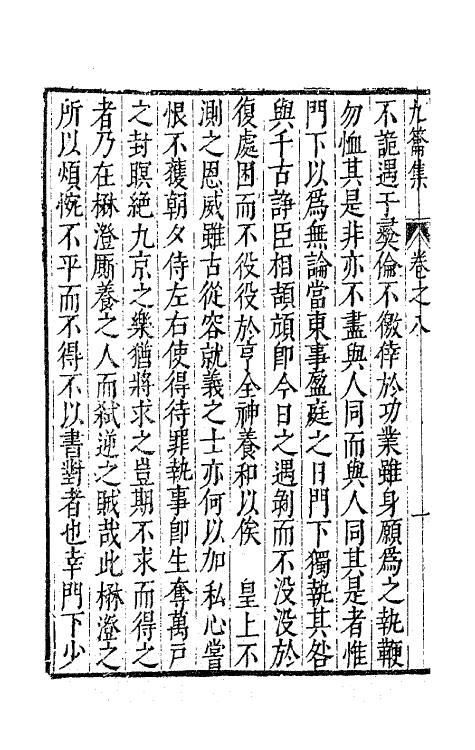 九籥集 卷之八 一
不詭遇于彝倫不徼倖於功業雖身願爲之執鞭
勿恤其是非亦不盡與人同而與人同其是者惟
門下以爲無論當東事盈庭之日門下獨執其咎
與千古諍臣相頡頏卽今日之遇剝而不没没於
復處困而不役役於亨全神養和以俟 皇上不
測之恩威雖古從容就義之士亦何以加私心嘗
恨不獲朝夕侍左右使得待罪執事卽生奪萬戸
之封瞑絶九京之樂猶將求之豈期不求而得之
者乃在楙澄厮養之人而弑逆之賊哉此楙澄之
所以煩惋不平而不得不以書對者也幸門下少